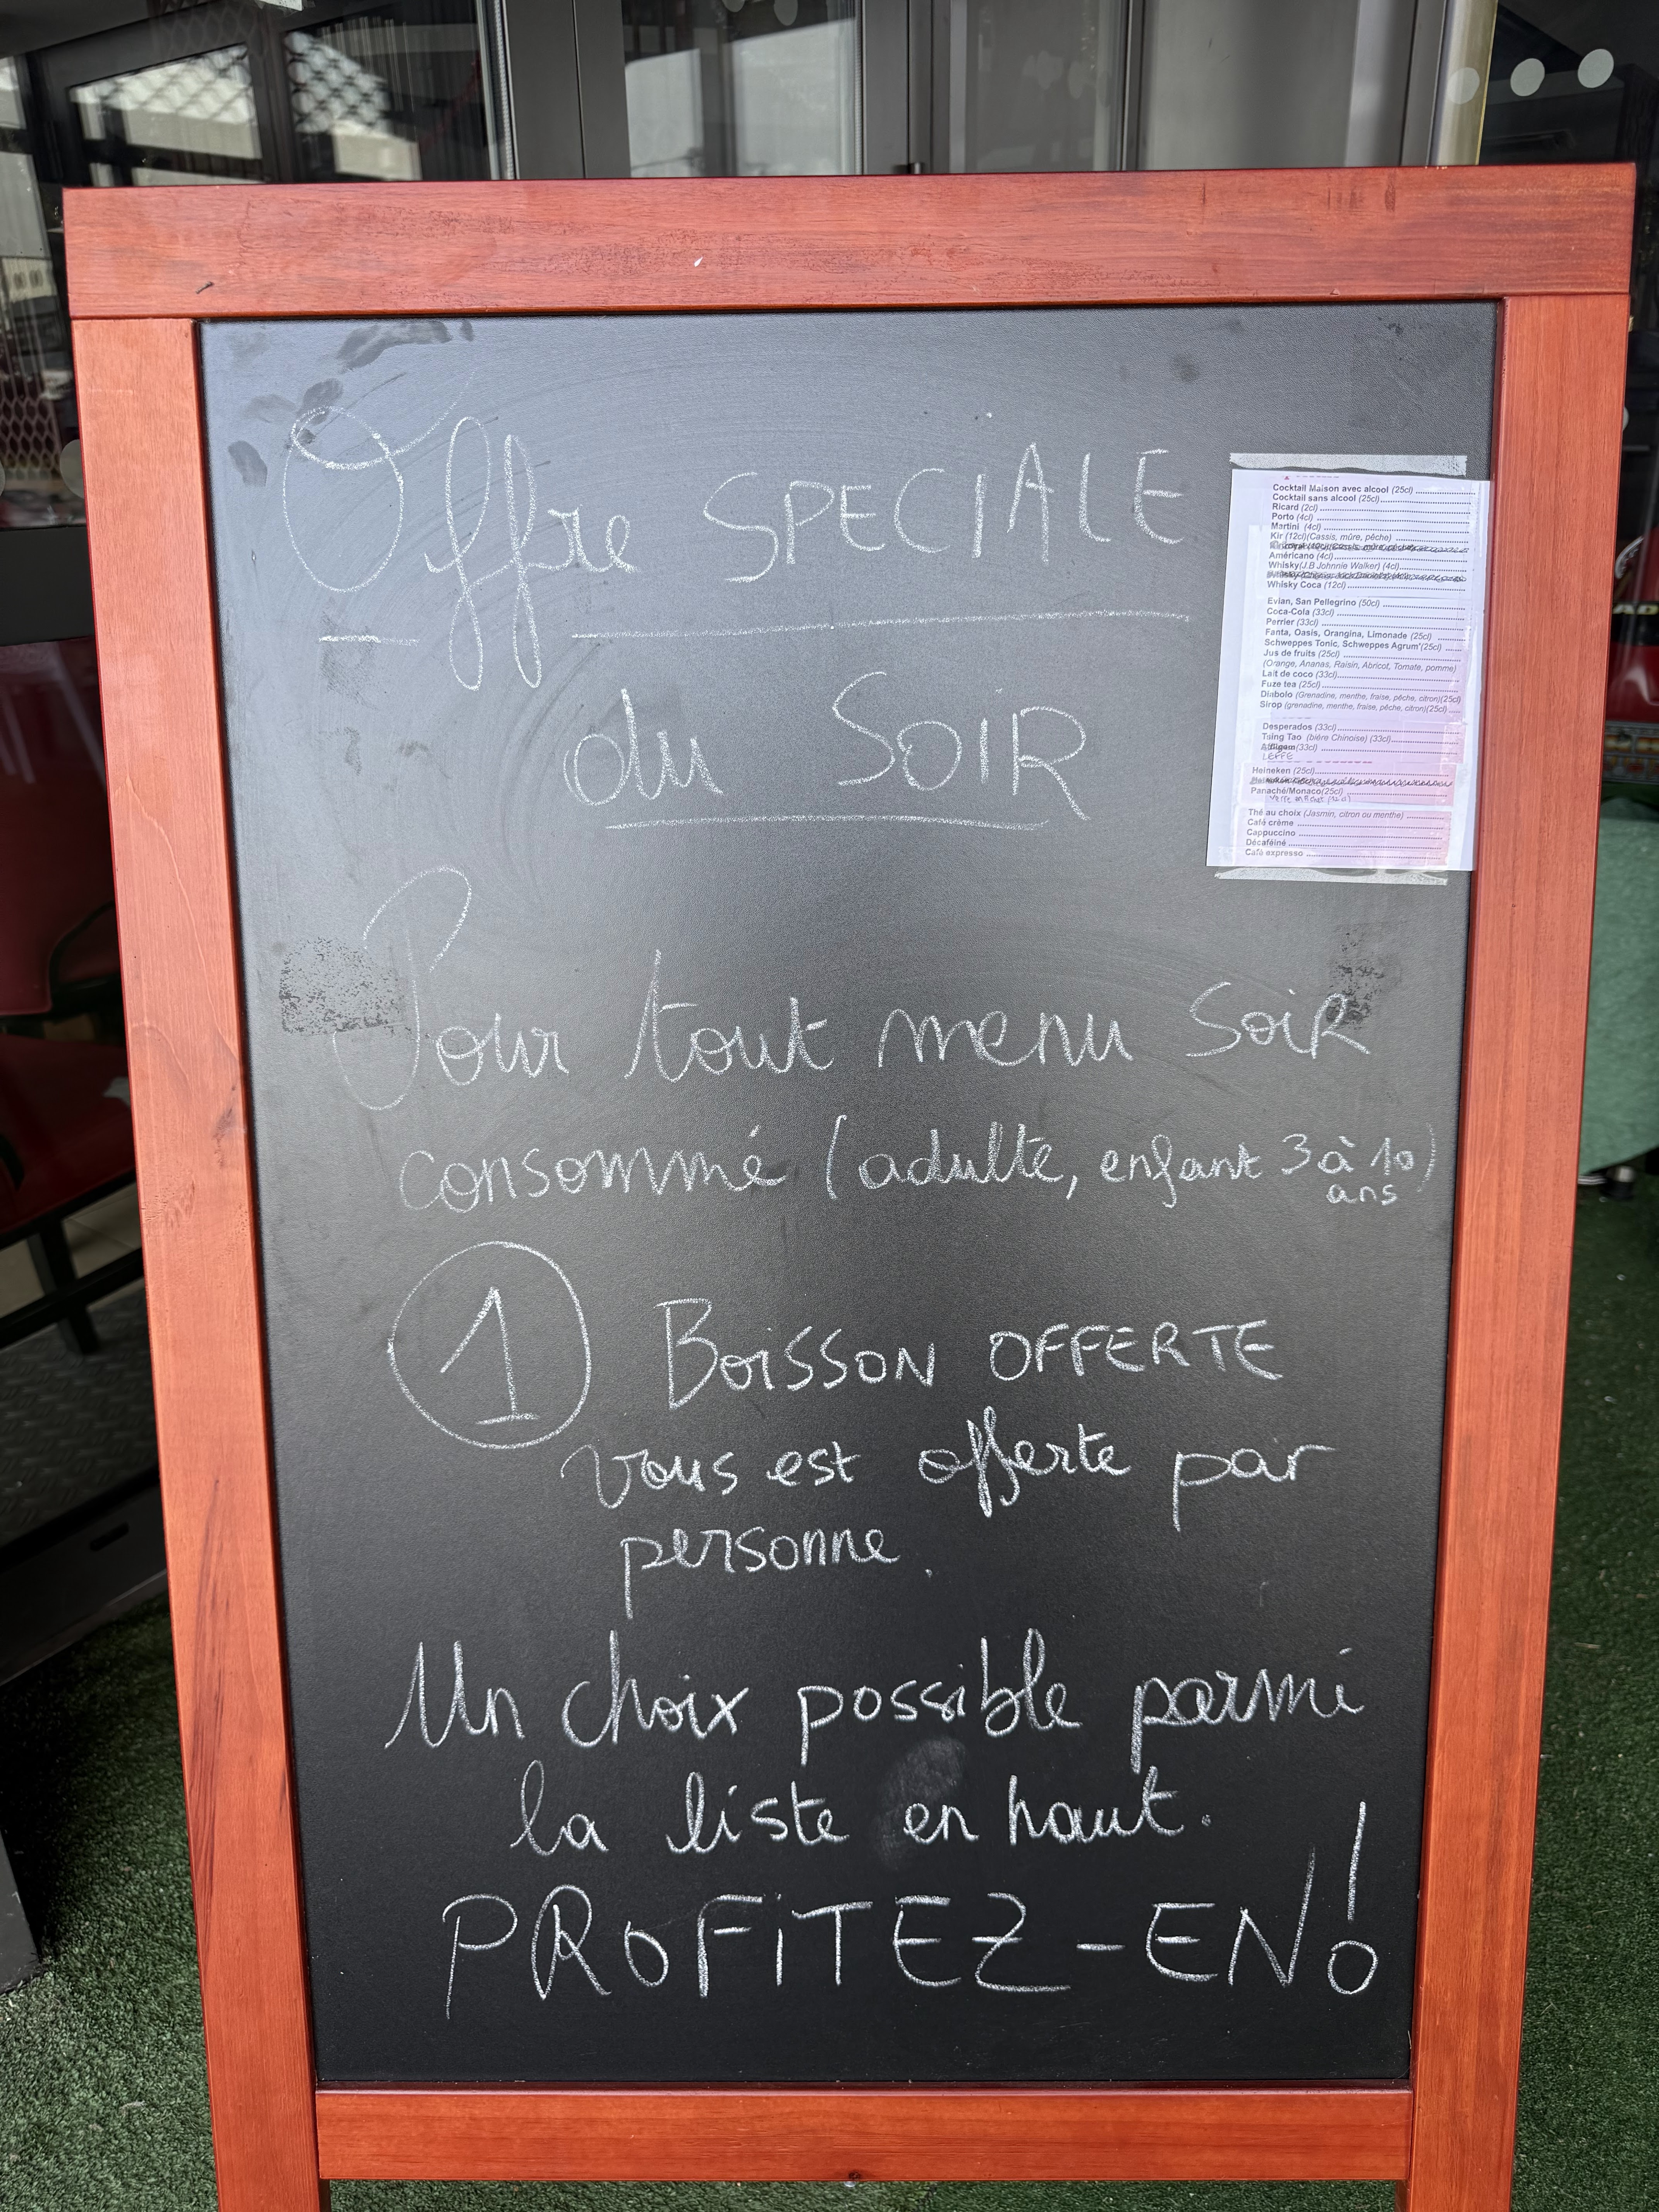 Offre SPECIALE
du SOIR
Pour tout menu SOIR
consommé (adulte, enfant 3 à 10
ans)
1 BOISSON OFFERTE
vous est offerte par
personne.
Un choix possible parmi
la liste en haut.
PROFITEZ-EN!
Cocktail Maison avec alcool (25cl)
Cocktail sans alcool (25cl)
Ricard (2cl)
Porto (4cl)
Martini (4cl)
Kir (12cl)(Cassis, mûre, pêche)
Américano (4cl)
Whisky(J.B Johnnie Walker) (4cl)
Whisky Coca (12cl)
Evian, San Pellegrino (50cl)
Coca-Cola (33cl)
Perrier (33cl)
Fanta, Oasis, Orangina, Limonade (25cl)
Schweppes Tonic, Schweppes Agrum'(25cl)
Jus de fruits (25cl)
(Orange, Ananas, Raisin, Abricot, Tomate, pomme)
Lait de coco (33cl)
Fuze tea (25cl)
Diabolo (Grenadine, menthe, fraise, pêche, citron)(25cl)
Sirop (grenadine, menthe, fraise, pêche, citron)(25cl)
Desperados (33cl)
Tsing Tao (bière Chinoise) (33cl)
(33cl)
LEFFE
Heineken (25cl)
Panaché/Monaco(25cl)
Thé au choix (Jasmin, citron ou menthe)
Café crème
Cappuccino
Décaféiné
Café expresso